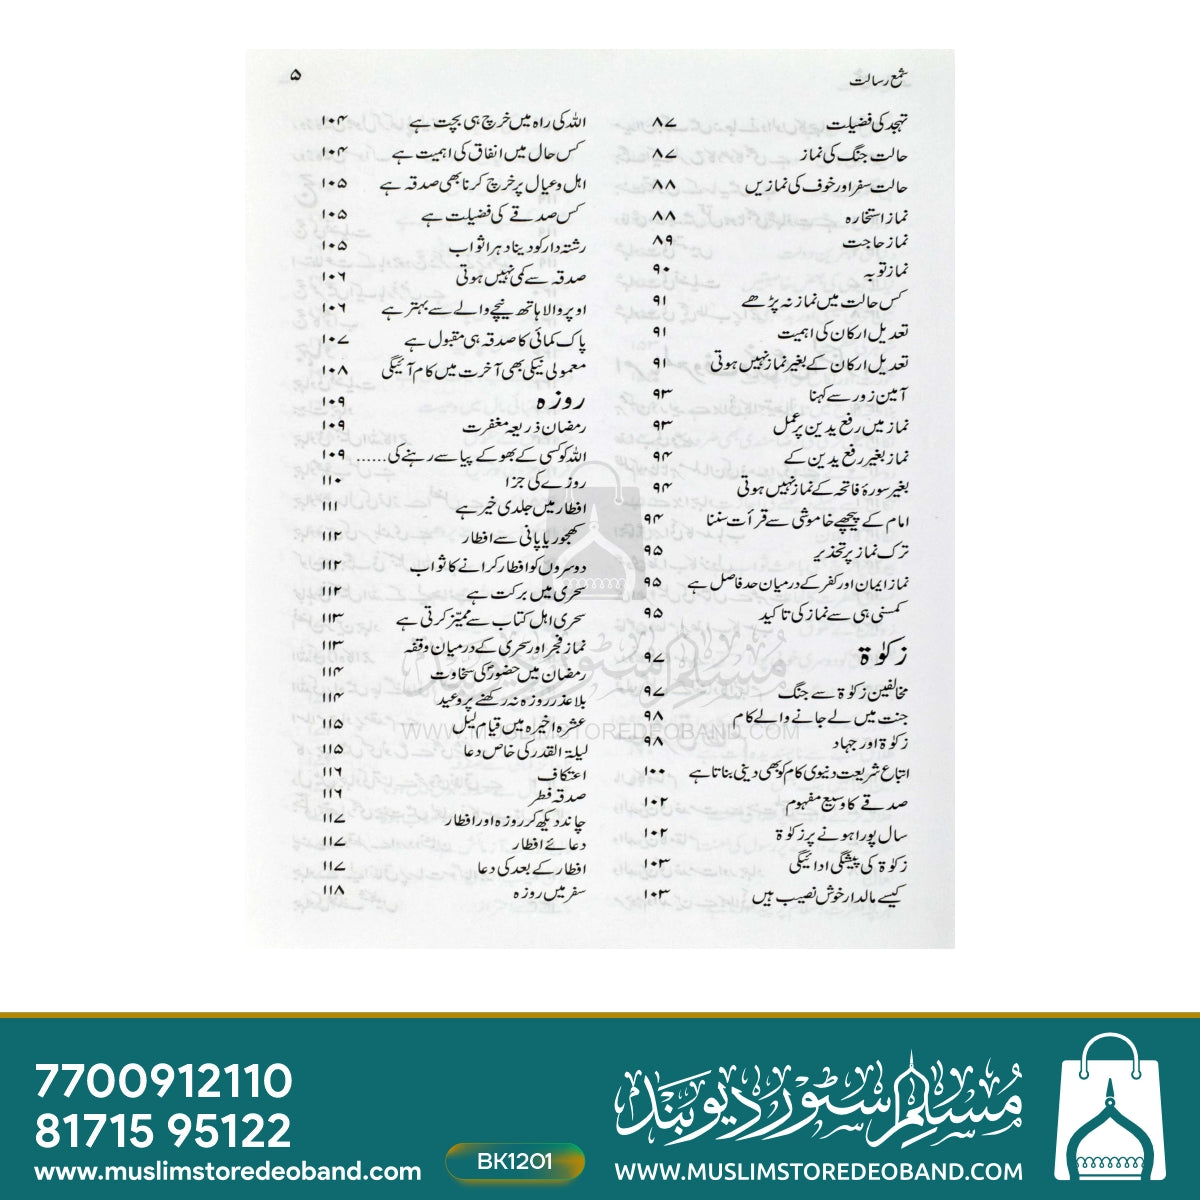 شمع رسالت ۵
تہجد کی فضیلت ۸۷
حالت جنگ کی نماز ۸۷
حالت سفر اور خوف کی نمازیں ۸۸
نماز استخارہ ۸۸
نماز حاجت ۸۹
نماز توبہ ۹۰
کس حالت میں نماز نہ پڑھے ۹۱
تعدیل ارکان کی اہمیت ۹۱
تعدیل ارکان کے بغیر نماز نہیں ہوتی ۹۱
آمین زور سے کہنا ۹۳
نماز میں رفع یدین پر عمل ۹۳
نماز بغیر رفع یدین کے ۹۴
بغیر سورۂ فاتحہ کے نماز نہیں ہوتی ۹۴
امام کے پیچھے خاموشی سے قرأت سننا ۹۴
ترک نماز پر تحذیر ۹۵
نماز ایمان اور کفر کے درمیان حد فاصل ہے ۹۵
کمسنی ہی سے نماز کی تاکید ۹۵
زکوٰۃ ۹۷
مخالفین زکوٰۃ سے جنگ ۹۷
جنت میں لے جانے والے کام ۹۸
زکوٰۃ اور جہاد ۹۸
اتباع شریعت دنیوی کام کو بھی دینی بناتا ہے ۱۰۰
صدقے کا وسیع مفہوم ۱۰۲
سال پورا ہونے پر زکوٰۃ ۱۰۲
زکوٰۃ کی پیشگی ادائیگی ۱۰۳
کیسے مالدار خوش نصیب ہیں ۱۰۳
اللہ کی راہ میں خرچ ہی بچت ہے ۱۰۴
کس حال میں انفاق کی اہمیت ہے ۱۰۴
اہل و عیال پر خرچ کرنا بھی صدقہ ہے ۱۰۵
کس صدقے کی فضیلت ہے ۱۰۵
رشتہ دار کو دینا دہرا ثواب ۱۰۵
صدقہ سے کمی نہیں ہوتی ۱۰۶
اوپر والا ہاتھ نیچے والے سے بہتر ہے ۱۰۶
پاک کمائی کا صدقہ ہی مقبول ہے ۱۰۷
معمولی نیکی بھی آخرت میں کام آئیگی ۱۰۸
روزہ ۱۰۹
رمضان ذریعہ مغفرت ۱۰۹
اللہ کو کسی کے بھوکے پیاسے رہنے کی...... ۱۰۹
روزے کی جزا ۱۱۰
افطار میں جلدی خیر ہے ۱۱۱
کھجور یا پانی سے افطار ۱۱۲
دوسروں کو افطار کرانے کا ثواب ۱۱۲
سحری میں برکت ہے ۱۱۲
سحری اہل کتاب سے ممیّز کرتی ہے ۱۱۳
نماز فجر اور سحری کے درمیان وقفہ ۱۱۳
رمضان میں حضورؐ کی سخاوت ۱۱۴
بلا عذر روزہ نہ رکھنے پر وعید ۱۱۴
عشرہ اخیرہ میں قیام لیل ۱۱۵
لیلۃ القدر کی خاص دعا ۱۱۵
اعتکاف ۱۱۶
صدقہ فطر ۱۱۶
چاند دیکھ کر روزہ اور افطار ۱۱۷
دعائے افطار ۱۱۷
افطار کے بعد کی دعا ۱۱۷
سفر میں روزہ ۱۱۸
مسلم سٹور دیوبند
WWW.MUSLIMSTOREDEOBAND.COM
7700912110
81715 95122
www.muslimstoredeoband.com
BK1201
مسلم سٹور دیوبند
WWW.MUSLIMSTOREDEOBAND.COM